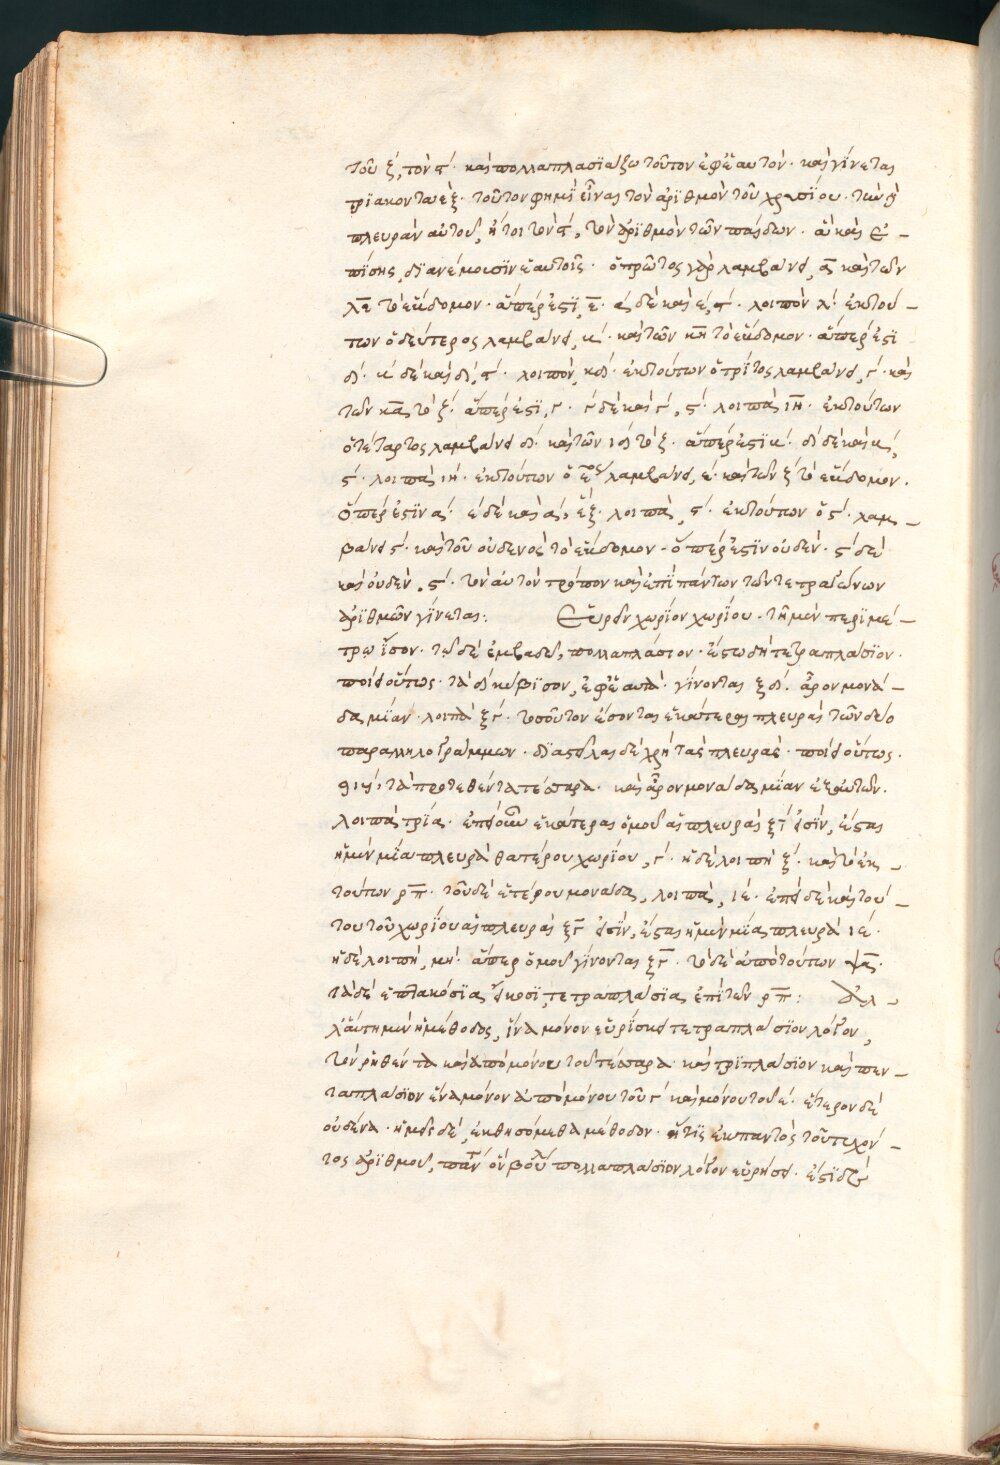 τοῦ ζ΄, τὸν ϛ΄· καὶ πολλαπλασϊάζω τοῦτον ἐφ' ἑαυτὸν· καὶ γίνεται
τριάκοντα ἓξ· τοῦτον φημὶ εἶναι τὸν ἀριθμὸν τοῦ χρυσίου· τὴν δὲ
πλευρὰν αὐτοῦ, ἤτοι τὸν ϛ΄, τὸν ἀριθμὸν τῶν παίδων· οἳ καὶ ἐ–
πίσης διανέμουσιν ἑαυτοῖς· ὁ πρῶτος γὰρ λαμβάνει, α καὶ τῶν
λε τὸ ἕβδομον· ἅπερ ἐστὶ, ε· α΄ δὲ καὶ ε΄, ϛ΄· λοιπὸν λ΄· ἐκ τού–
των ὁ δεύτερος λαμβάνει, β΄· καὶ τῶν κη τὸ ἕβδομον· ἅπερ ἐστὶ
δ΄· β΄ δὲ καὶ δ΄, ϛ΄· λοιπὸν, κδ΄· ἐκ τούτων ὁ τρίτος λαμβάνει, γ΄· καὶ
τῶν κα τὸ ζ΄· ἅπερ ἐστὶ, γ· γ΄ δὲ καὶ γ΄, ϛ΄· λοιπὰ ιη· ἐκ τούτων
ὁ τέταρτος λαμβάνει δ΄· καὶ τῶν ιδ τὸ ζ· ἅπερ ἐστὶ β΄· δ΄ δὲ καὶ β΄,
ϛ΄· λοιπὰ ιβ΄· ἐκ τούτων ὁ ε^ος λαμβάνει, ε΄· καὶ τῶν ζ τὸ ἕβδομον·
ὅπερ ἐστὶν α΄· ε΄ δὲ καὶ α΄, ἓξ· λοιπὰ, ϛ΄· ἐκ τούτων ὁ ϛ΄· λαμ–
βάνει ϛ΄· καὶ τοῦ οὐδενὸς τὸ ἕβδομον· ὅπερ ἐστὶν οὐδὲν· ϛ΄ δὲ
καὶ οὐδὲν, ϛ΄· τὸν αὐτὸν τρόπον καὶ ἐπὶ πάντων τῶν τετραγώνων
ἀριθμῶν γίνεται: Εὑρεῖν χωρίον χωρίου· τῇ μὲν περιμέ–
τρῳ ἴσον· τῷ δὲ ἐμβαδῷ, πολλαπλάσιον· ἔστω δὴ τετραπλάσϊον·
ποίει οὕτως· τὰ δ΄ κύβϊσον, ἐφ' ἑαυτὰ· γίνονται ξδ΄. ἆρον μονά–
δα μίαν· λοιπὰ ξγ΄· τοσοῦτον ἔσονται ἑκάτεραι πλευραὶ τῶν δύο
παραλληλογράμμων· διαστεῖλαι δὲ χρὴ τὰς πλευρὰς· ποίει οὕτως·
θὲς, τὰ προτεθέντα τέσσαρα· καὶ ἆρον μονάδα μίαν ἐξ αὐτῶν·
λοιπὰ τρία· ἐπεὶ οὖν ἑκάτεραι ὁμοῦ αἱ πλευραὶ ξγ΄ εἰσὶν, ἔσται
ἡ μὲν μία πλευρὰ θατέρου χωρίου, γ΄· ἡ δὲ λοιπὴ ξ΄· καὶ τὸ ἐκ –
τούτων ρπ· τοῦ δὲ ἑτέρου μονάδα, λοιπὰ, ιε΄· ἐπεὶ δὲ καὶ τού–
του τοῦ χωρίου αἱ πλευραὶ ξγ εἰσὶν, ἔσται ἡ μὲν μία πλευρὰ ιε΄·
ἡ δὲ λοιπὴ, μη΄· ἅπερ ὁμοῦ γίνονται ξγ· τὸ δὲ ἀπὸ τούτων ψκ·
τὰ δὲ ἑπτακόσια εἴκοσι, τετραπλάσια ἐστὶ τῶν ρπ: Ἀλ–
λ' αὕτη μὲν ἡ μέθοδος, ἕνα μόνον εὑρίσκει τετραπλάσϊον λόγον,
τὸν ῥηθέντα καὶ ἀπὸ μόνου τοῦ τέσσαρα· καὶ τριπλάσϊον καὶ πεν–
ταπλάσϊον ἕνα μόνον ἀπὸ μόνου τοῦ γ΄ καὶ μόνου τοῦ ε΄· ἕτερον δὲ
οὐδένα· ἡμεῖς δὲ, ἐκθησόμεθα μέθοδον· ἥτις ἐκ παντὸς τοῦ τυχόν–
τος ἀριθμοῦ, πάντα ὃν βούλει πολλαπλάσϊον λόγον εὑρήσει· ἔστι δὲ